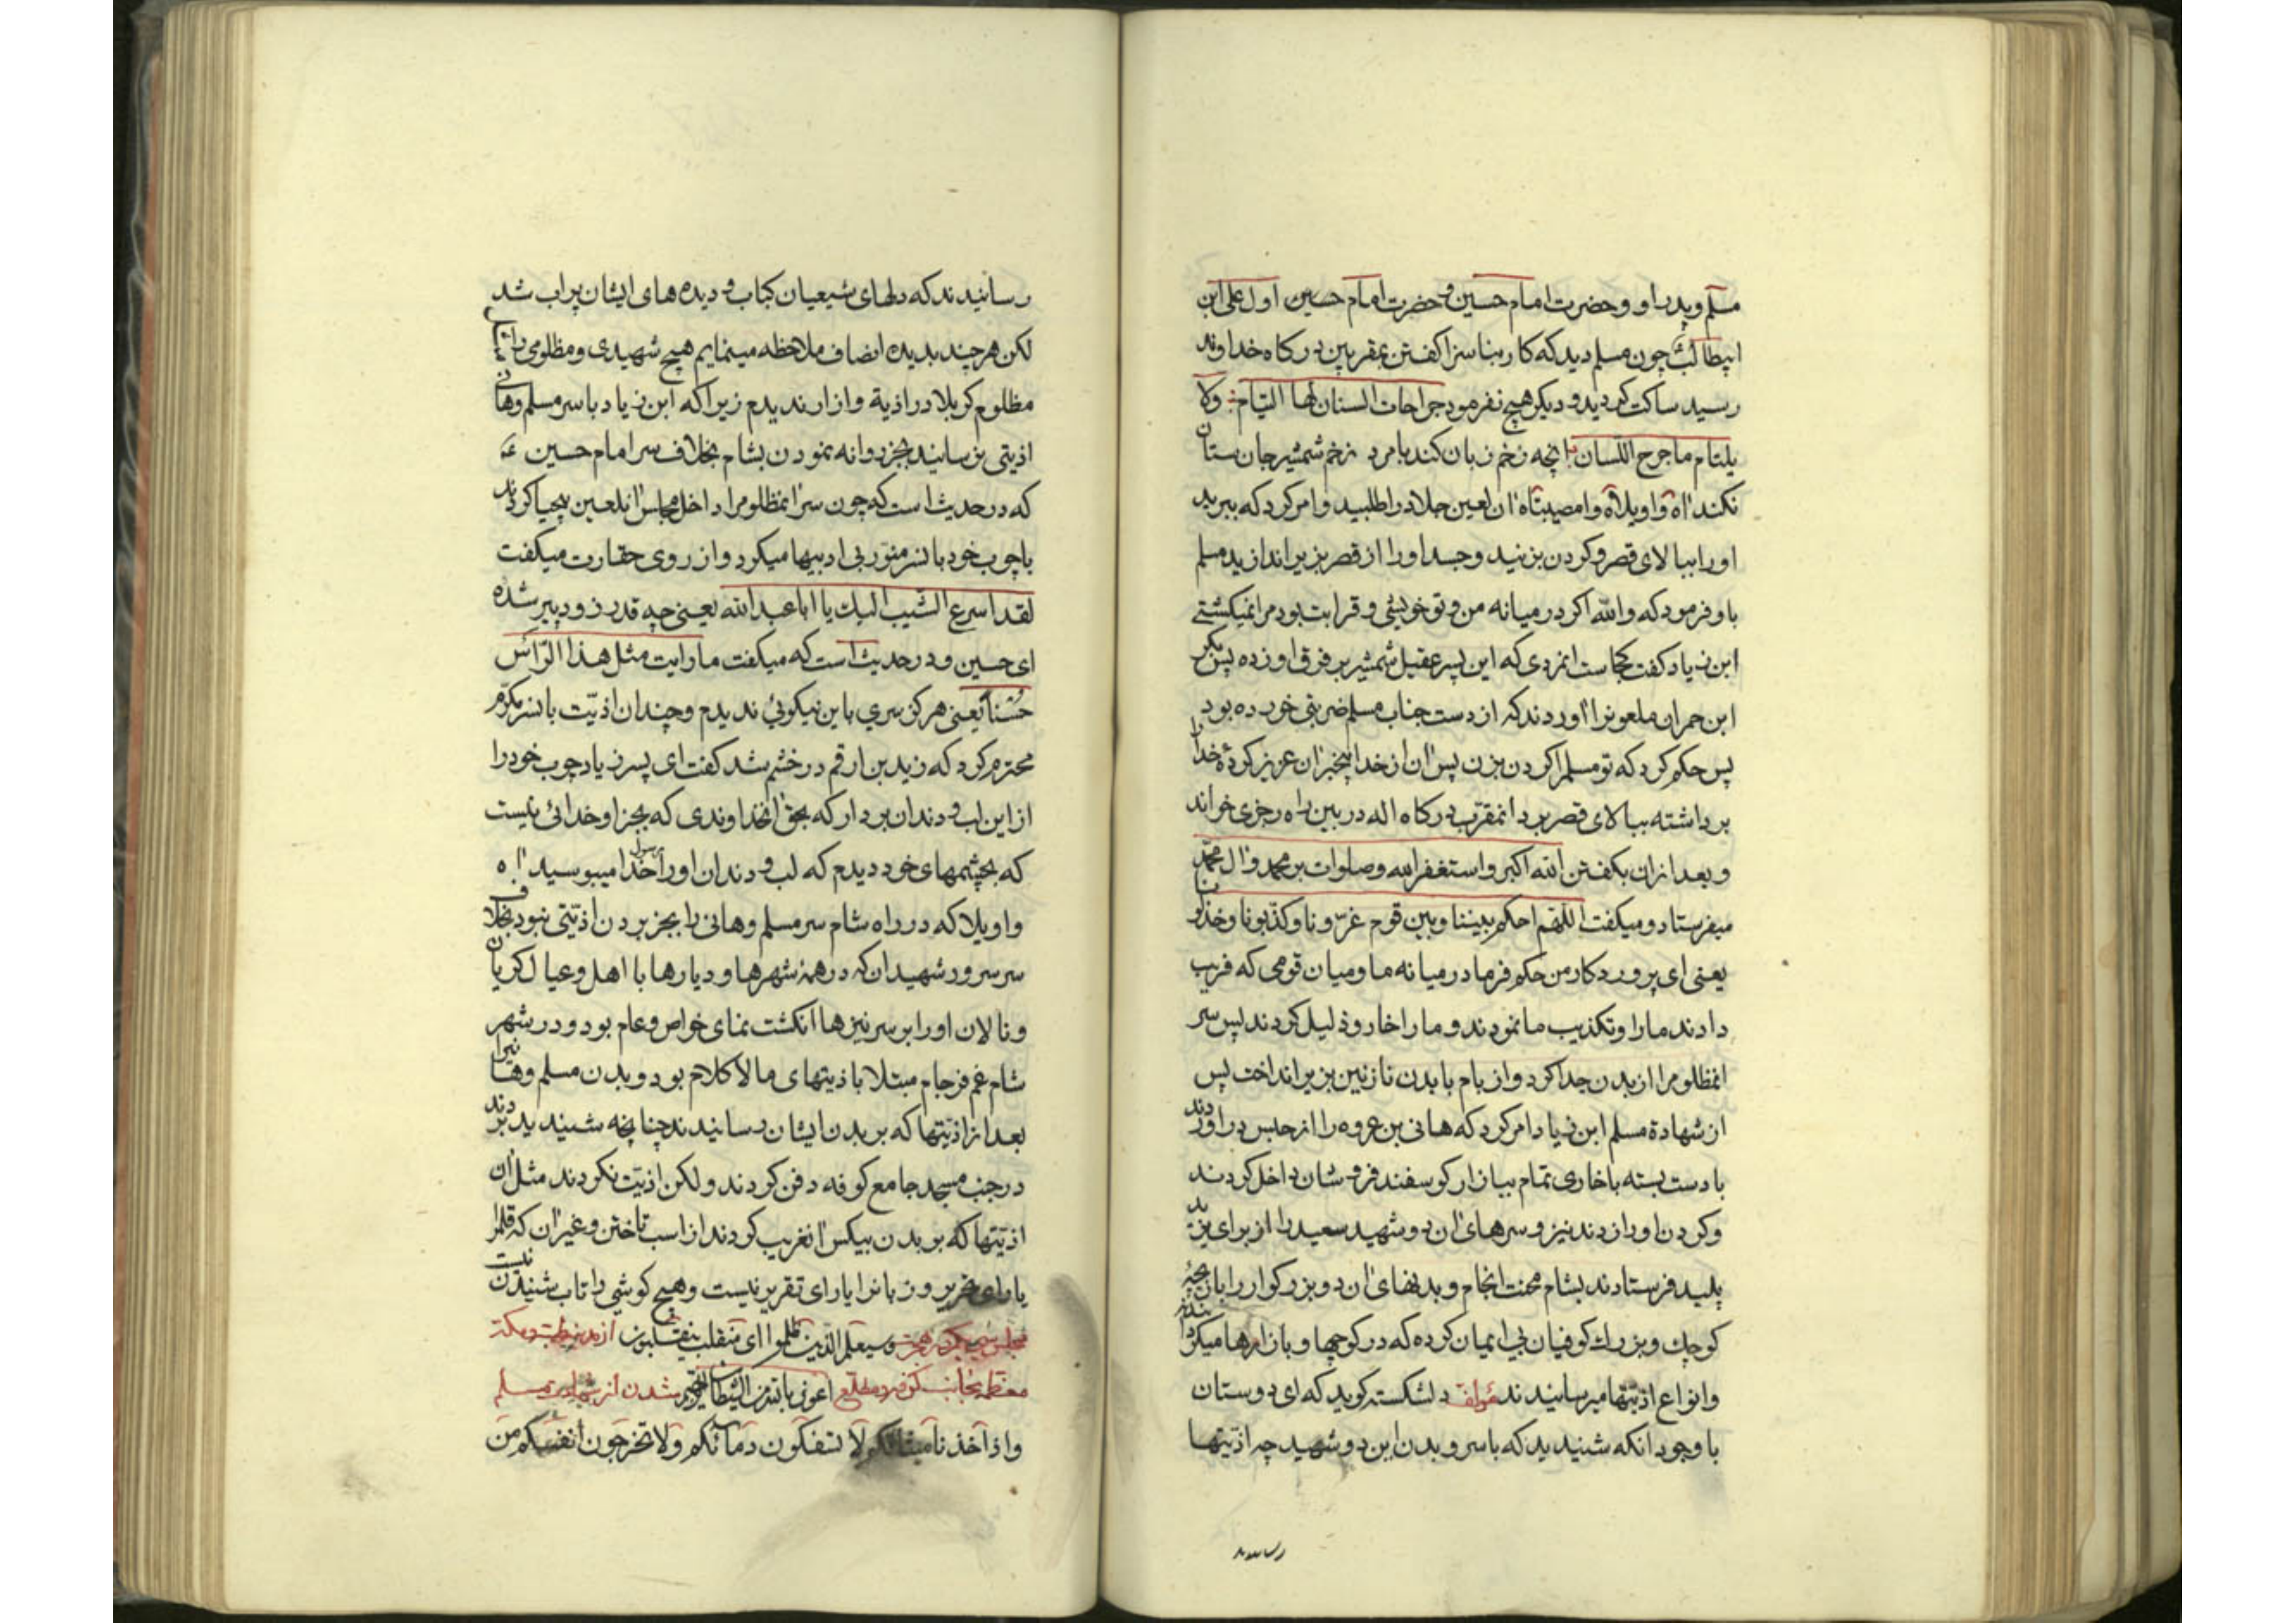 مسلم و پدر او و حضرت امام حسین و حضرت امام حسین اول علی ابن
ابیطالب چون مسلم دید که کار بناسزا کفتن بمقربین درکاه خداوند
رسید ساکت کردید و دیکر هیچ نفرمود جراحات السنان لها التیام ولا
یلتام ما جرح اللسان انچه زخم زبان کند با مرد زخم شمشیر جان ستان
نکند اه واویلاه وامصیبتاه ان لعین جلاد را طلبید و امر کرد که ببرید
اورا ببالای قصر و کردن بزنید و جسد اورا از قصر بزیر اندازید مسلم
باو فرمود که والله اکر در میانه من و تو خویشی و قرابت بود مرا نمیکشتی
ابن زیاد کفت کجاست انمردی که این پسر عقیل شمشیر بر فرق او زده پس بکر
ابن حمران ملعونرا اوردند که از دست جناب مسلم ضربتی خورده بود
پس حکم کرد که تو مسلم را کردن بزن پس ان از خدا بیخبر ان عزیز کردهٔ خدا را
برداشته ببالای قصر برد انمقرب درکاه اله در بین راه رجزی خواند
و بعد ازان بکفتن الله اکبر و استغفر الله و صلوات بر محمد و ال محمد
میفرستاد و میکفت اللهم احکم بیننا و بین قوم غرّونا و کذبونا و خذلونا
یعنی ای پروردکار من حکم فرما در میانه ما و میان قومی که فریب
دادند مارا و تکذیب ما نمودند و مارا خار و ذلیل کردند پس سر
انمظلومرا از بدن جدا کرد و از بام با بدن نازنین بزیر انداخت پس
از شهادة مسلم ابن زیاد امر کرد که هانی بن عروه را از حبس دراوردند
با دست بسته با خاری تمام ببازار کوسفند فروشان داخل کردند
و کردن اورا زدند نیز و سرهای ان دو شهید سعید را از برای یزید
پلید فرستادند بشام محنت انجام و بدنهای ان دو بزرکوار را بان بچهٔ
کوچك و بزرك کوفیان بی ایمان کرده که در کوچها و بازارها میکردانیدند
و انواع اذیتها میرسانیدند مؤلف دلشکسته کوید که ای دوستان
با وجود انکه شنیدید که با سر و بدن این دو شهید چه اذیتها
رسانیدند
رسانیدند که دلهای شیعیان کباب و دیده های ایشان پر اب شد
لکن هر چند بدیده انصاف ملاحظه مینمایم هیچ شهیدی و مظلومی را مثل
مظلوم کربلا در اذیة و ازار ندیدم زیرا که ابن زیاد با سر مسلم و هانی
اذیتی نرسانید بجز روانه نمودن بشام بخلاف سر امام حسین ع
که در حدیث است که چون سر انمظلومرا داخل مجلس انلعین بیحیا کردند
با چوب خود با سر منور بی ادبیها میکرد و از روی حقارت میکفت
لقد اسرع الشیب الیك یا ابا عبد الله یعنی چه قدر زود پیر شده
ای حسین و در حدیث است که میکفت ما رایت مثل هذا الرّائس
حُسْناً یعنی هرکز سری باین نیکوئی ندیدم و چندان اذیت با سر مکرم
محترم کرد که زید بن ارقم در خشم شد کفت ای پسر زیاد چوب خود را
از این لب و دندان بردار که بحق انخداوندی که بجز او خدائی نیست
که بچشمهای خود دیدم که لب و دندان اورا رسول خدا میبوسید اه
واویلا که در راه شام سر مسلم و هانی را بجز بردن اذیتی نبود بخلاف
سر سرور شهیدان که در همهٔ شهرها و دیارها با اهل و عیال کریان
و نالان اورا بر سر نیزها انکشت نمای خواص و عام بود و در شهر
شام غم فرجام مبتلا باذیتهای مالا کلام بود و بدن مسلم و هانی را
بعد از اذیتها که بر بدن ایشان رسانیدند چنانچه شنیدید بردند
در جنب مسجد جامع کوفه دفن کردند ولکن اذیت نکردند مثل ان
اذیتها که بر بدن بیکس انغریب کردند از اسب تاختن و غیر ان که قلمرا
یارای تحریر و زبانرا یارای تقریر نیست و هیچ کوشی را تاب شنیدن نیست
و سیعلم الذین ظلموا ای منقلب ینقلبون از مدینه طیبه و مکه
معظمه بجانب کوفه و مطلع اعوذ بالله من الشیطان الرجیم شدن از شهادت مسلم
و اذ اخذنا میثاقکم لا تسفکون دمائکم ولا تخرجون انفسکم من